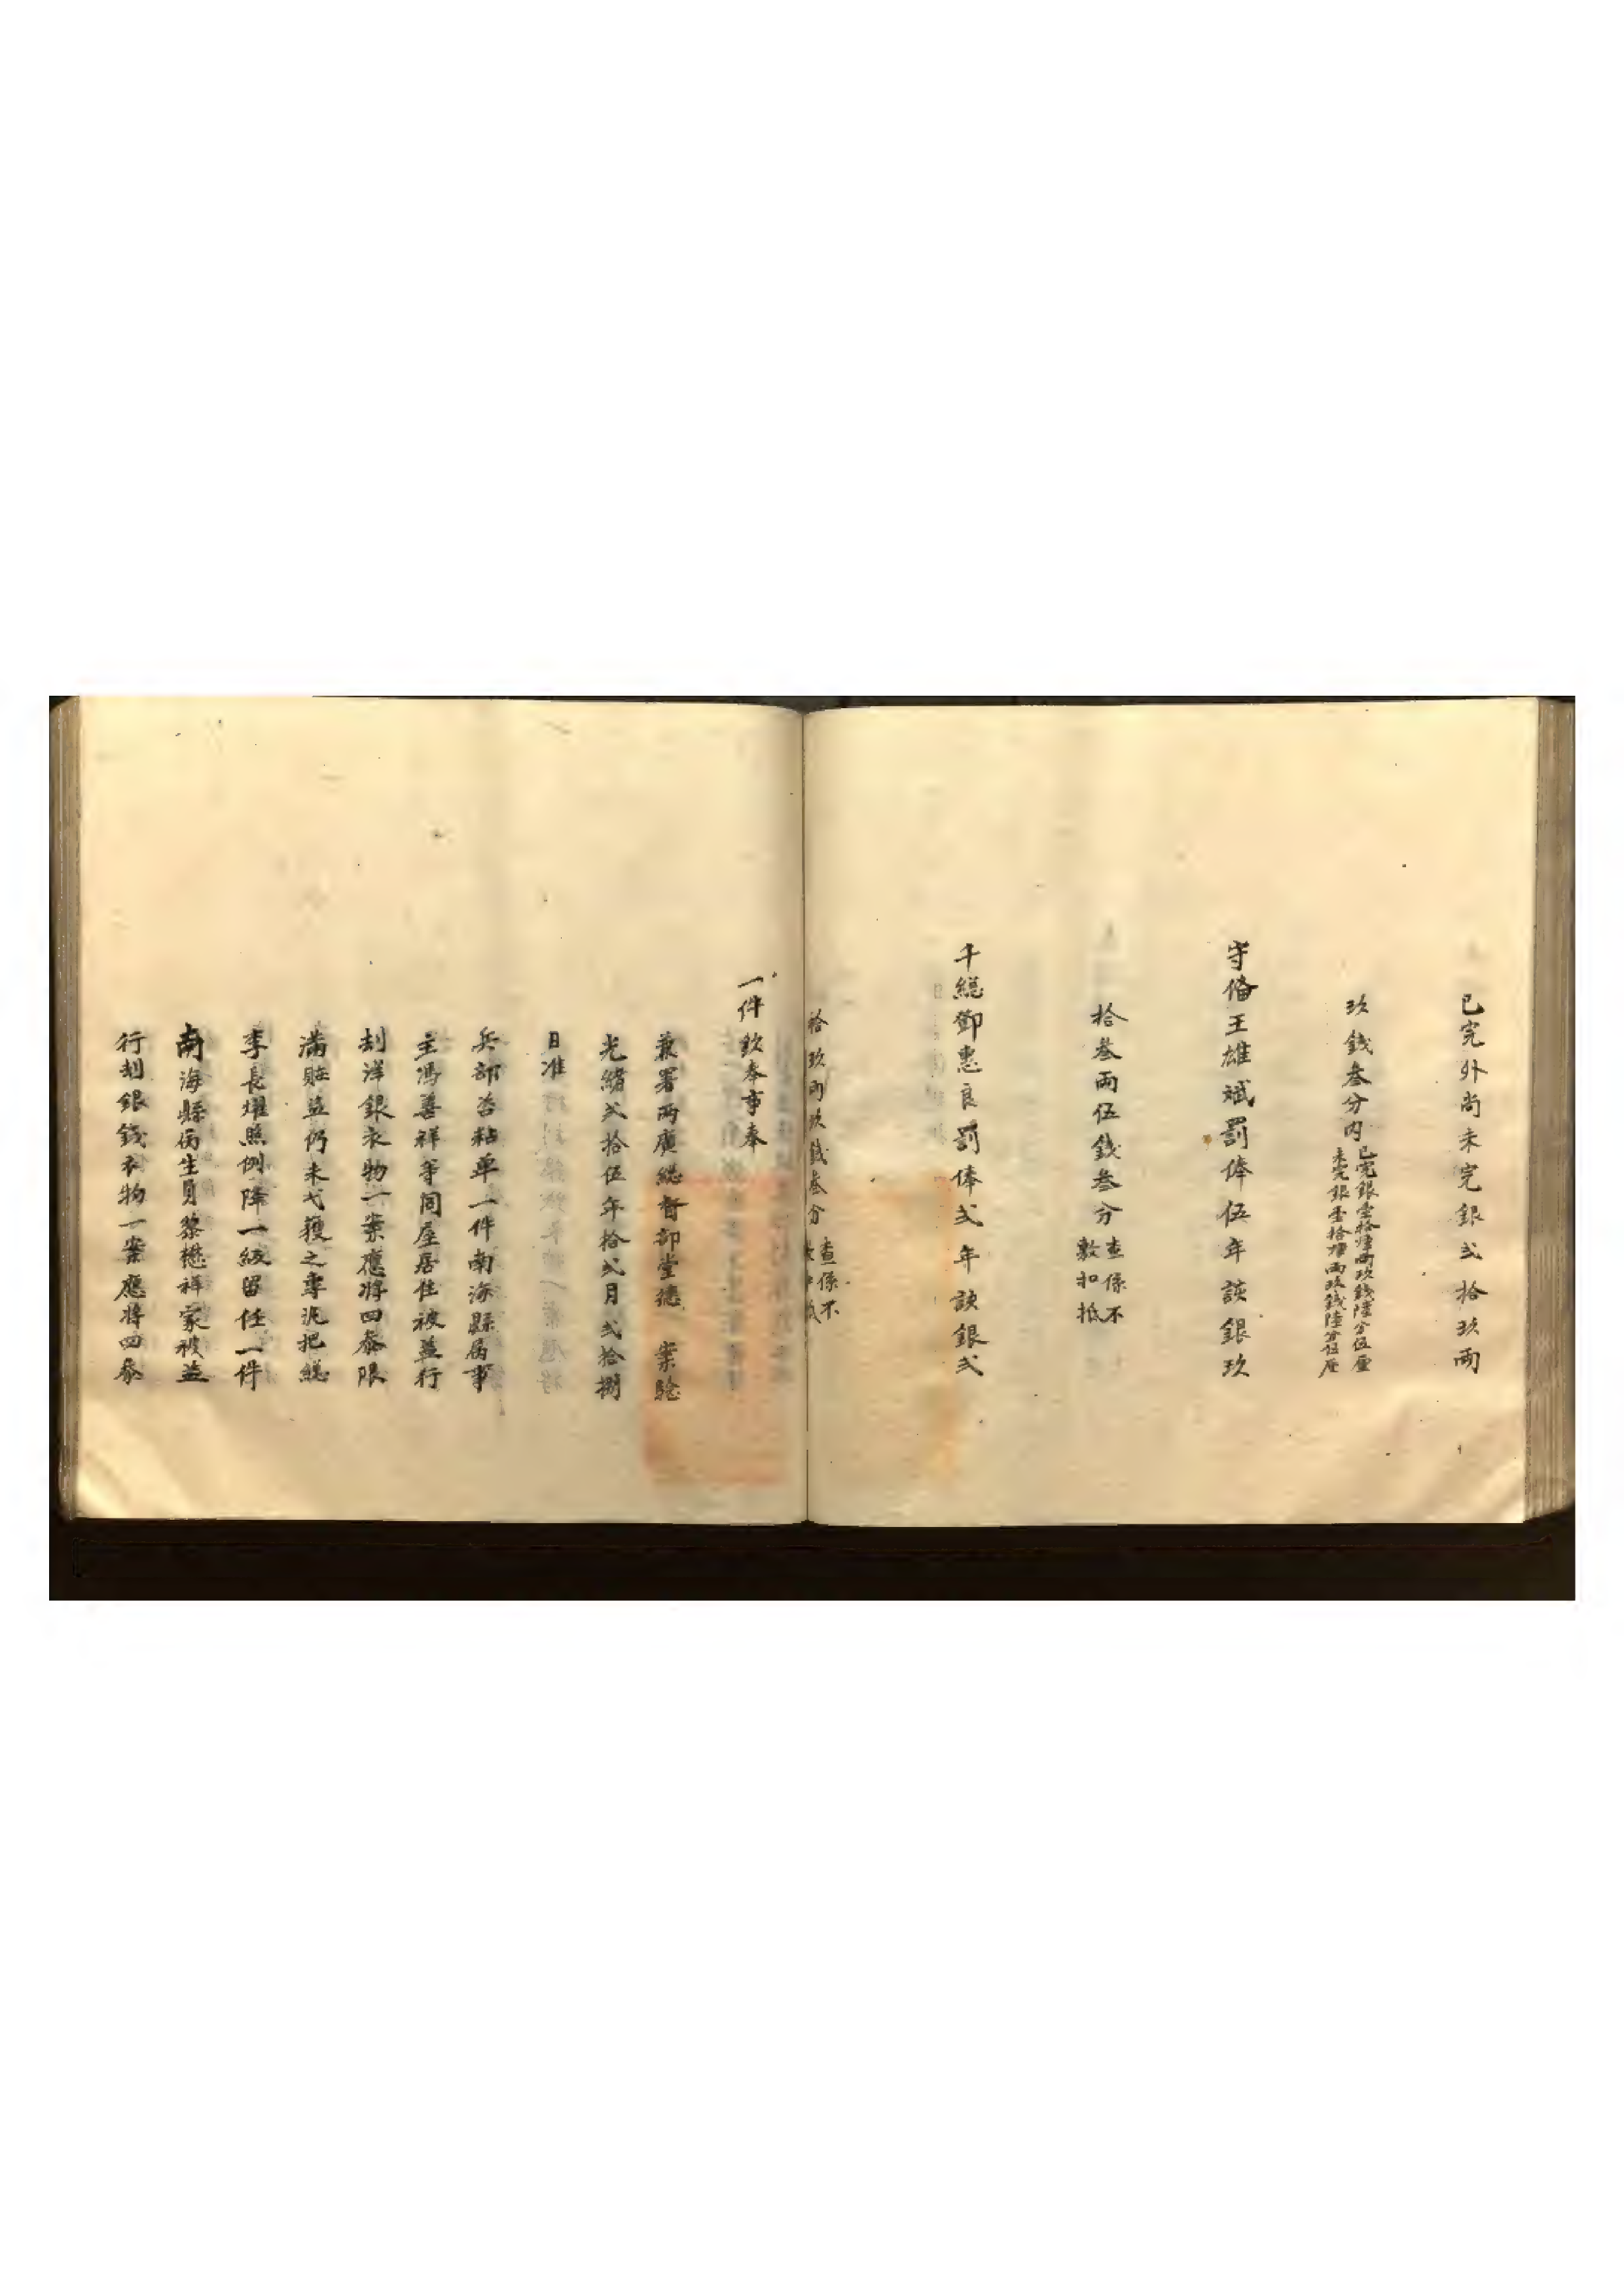 已完外尚未完銀弍拾玖兩
玖錢叁分內
已完銀壹拾肆兩玖錢陸分伍厘
未完銀壹拾肆兩玖錢陸分伍厘
守備王雄斌罰俸伍年該銀玖
拾叁兩伍錢叁分
查係不
敷扣抵
千緫鄧惠良罰俸弍年該銀弍
拾玖兩玖錢叁分
查係不
敷扣抵
一件欽奉事奉
兼署兩廣緫督部堂德 案驗
光緒弍拾伍年拾弍月弍拾捌
日准
兵部咨粘單一件南海縣屬事
主馮善祥等同屋居住被盜行
刦洋銀衣物一案應將四叅限
滿賍盜仍未弋獲之專汛把緫
李長燿照例降一級留任一件
南海縣屬生員黎懋祥家被盜
行刦銀錢衣物一案應將四叅